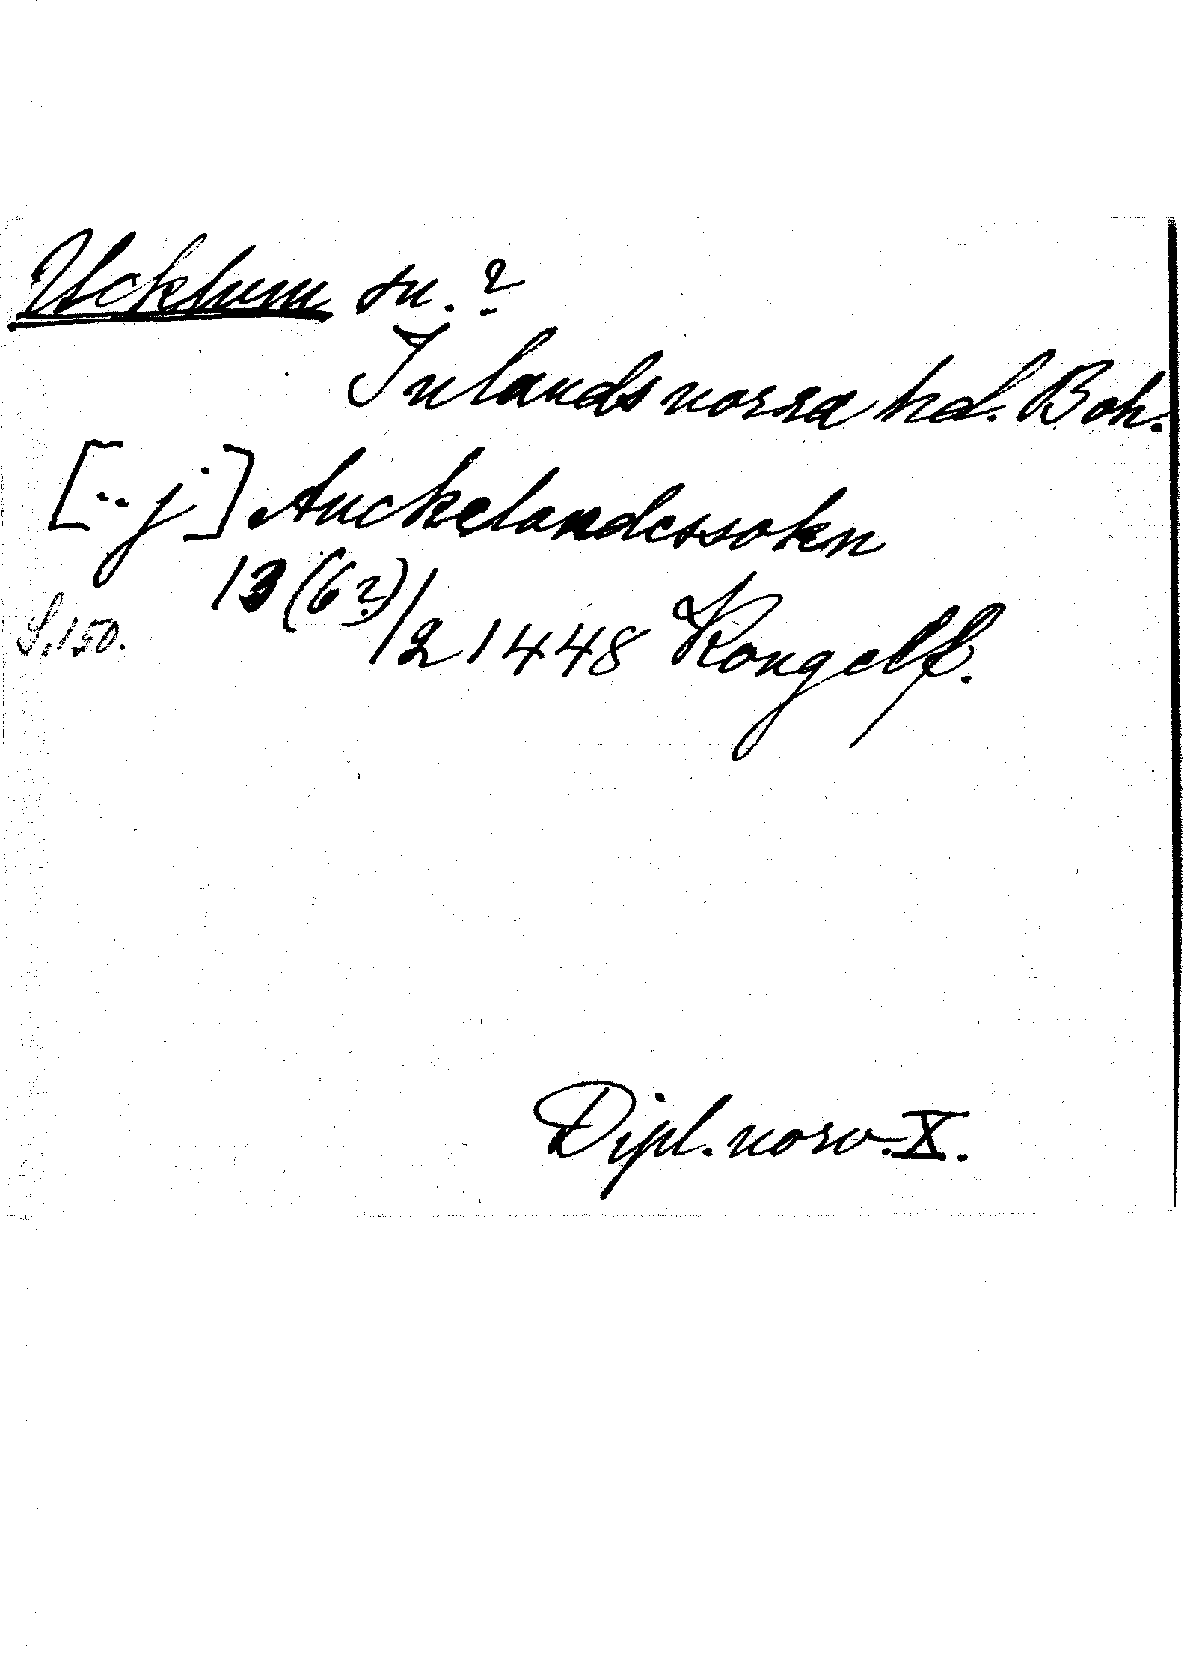 Ucklum sn. ?
Inlands norra hd. Boh.
[.. j] Auckelandessokn
13 (6?)/2 1448 Kongelf.
S. 150.
Dipl. norv. X.